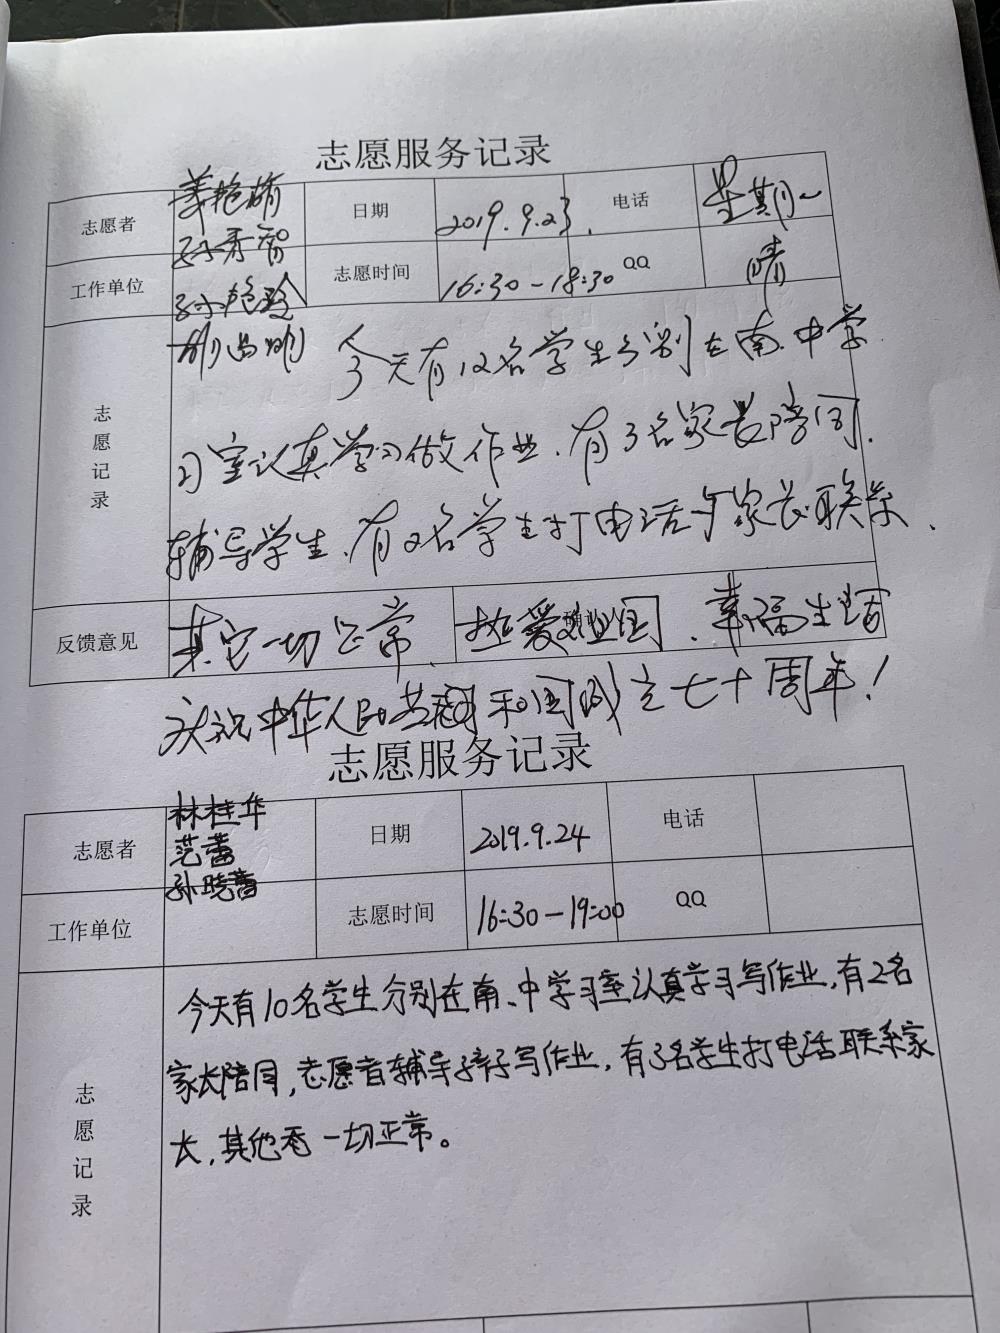 志愿服务记录
志愿者 日期 2019.9.23. 电话 星期一
孙秀智
工作单位 志愿时间 16:30-18:30 QQ 晴
孙艳玲
今天有12名学生分别在南.中学
志愿记录 习室认真学习做作业.有3名家长陪同.
辅导学生.有2名学生打电话与家长联系.
反馈意见 其它一切正常.热爱祖国、幸福生活
庆祝中华人民共和国成立七十周年!
志愿服务记录
志愿者 林桂华 日期 2019.9.24 电话
范蕾
孙晓蕾
工作单位 志愿时间 16:30-19:00 QQ
今天有10名学生分别在南、中学习室认真学习写作业,有2名
志愿记录 家长陪同,志愿者辅导孩子写作业,有3名学生打电话联系家
长,其他一切正常。